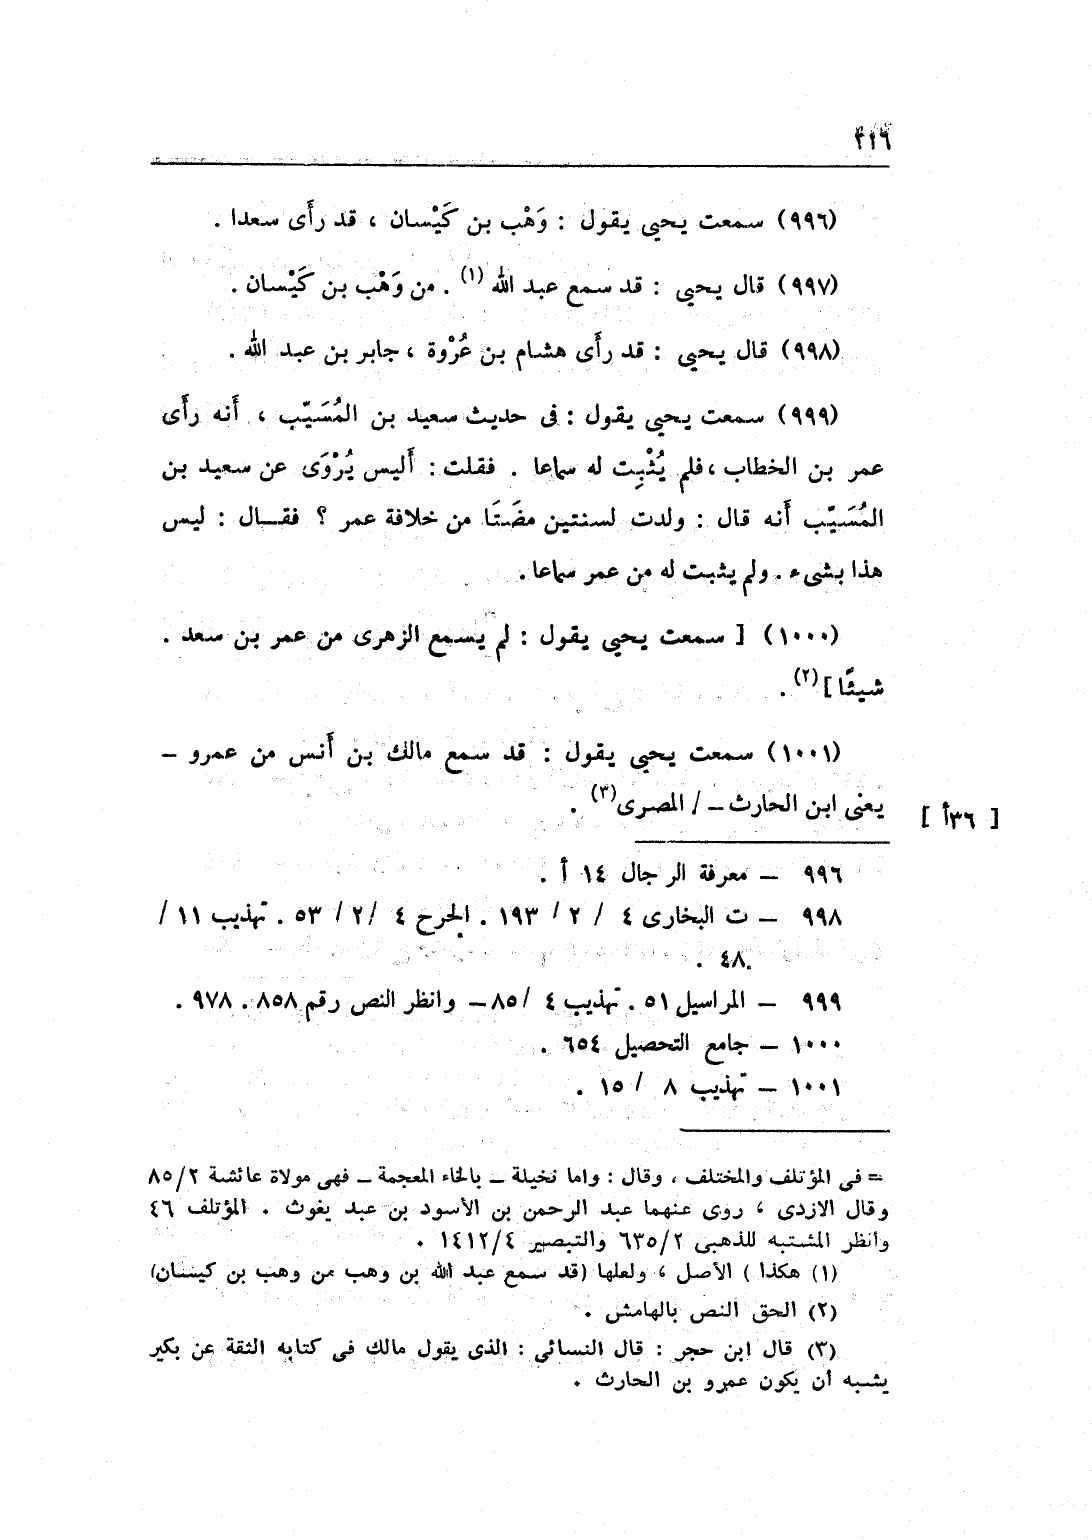 ٢١٦
(٩٩٦) سمعت يحيى يقول : وَهْب بن كَيْسان ، قد رأَى سعدا .
(٩٩٧) قال يحيى : قد سمع عبد الله (١) . من وَهْب بن كَيْسان .
(٩٩٨) قال يحيى : قد رأَى هشام بن عُرْوة ، جابر بن عبد الله .
(٩٩٩) سمعت يحيى يقول : فى حديث سعيد بن المُسَيّب ، أَنه رأَى
عمر بن الخطاب ، فلم يُثْبِت له سماعا . فقلت : أَليس يُرْوَى عن سعيد بن
المُسَيّب أَنه قال : ولدت لسنتين مضَتَا من خلافة عمر ؟ فقال : ليس
هذا بشىء . ولم يثبت له من عمر سماعا .
(١٠٠٠) [ سمعت يحيى يقول : لم يسمع الزهرى من عمر بن سعد .
شيئًا ] (٢) .
(١٠٠١) سمعت يحيى يقول : قد سمع مالك بن أَنس من عمرو –
يعنى ابن الحارث – / المصرى (٣) .
[ ٣٦أ ]
٩٩٦ – معرفة الرجال ١٤ أ .
٩٩٨ – ت البخارى ٤ / ٢ / ١٩٣ . الجرح ٤ / ٢ / ٥٣ . تهذيب ١١ /
٤٨ .
٩٩٩ – المراسيل ٥١ . تهذيب ٤ / ٨٥ – وانظر النص رقم ٨٥٨ . ٩٧٨ .
١٠٠٠ – جامع التحصيل ٦٥٤ .
١٠٠١ – تهذيب ٨ / ١٥ .
= فى المؤتلف والمختلف ، وقال : واما نخيلة – بالخاء المعجمة – فهى مولاة عائشة ٨٥/٢
وقال الازدى ، روى عنهما عبد الرحمن بن الأسود بن عبد يغوث . المؤتلف ٤٦
وانظر المشتبه للذهبى ٦٣٥/٢ والتبصير ١٤١٢/٤ .
(١) هكذا ) الأصل ، ولعلها (قد سمع عبد الله بن وهب من وهب بن كيسان)
(٢) الحق النص بالهامش .
(٣) قال ابن حجر : قال النسائى : الذى يقول مالك فى كتابه الثقة عن بكير
يشبه أن يكون عمرو بن الحارث .